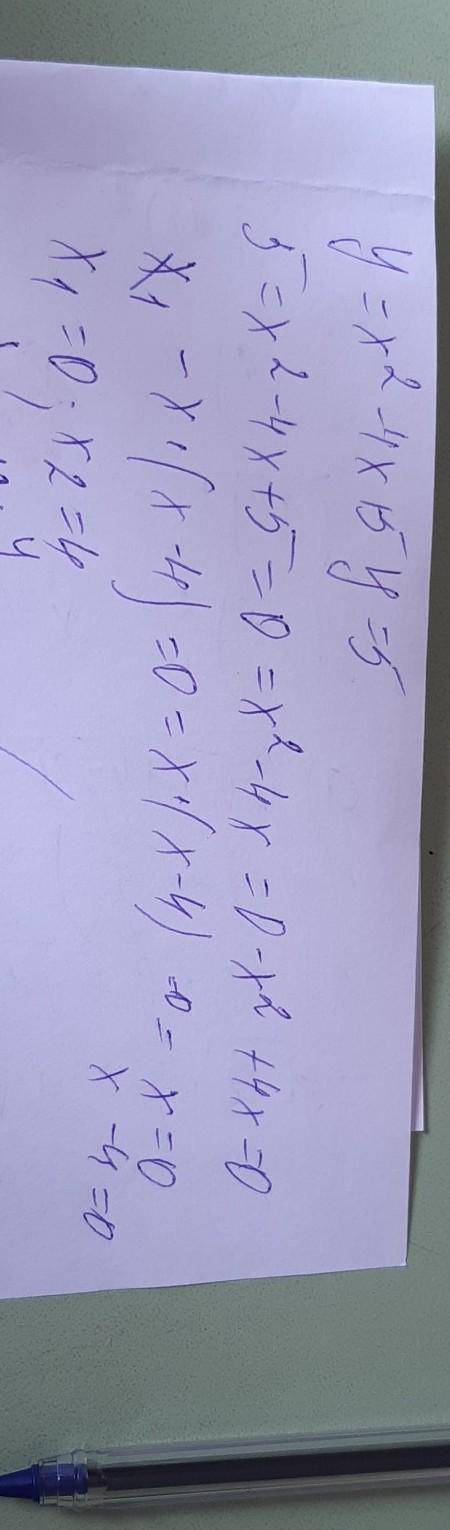 y = x² - 4x + 5 y = 5
5 = x² - 4x + 5 = 0 = x² - 4x = 0 - x² + 4x = 0
x₁ - x · (x - 4) = 0 = x · (x - 4) = 0 = x = 0
x - 4 = 0
x₁ = 0; x₂ = 4